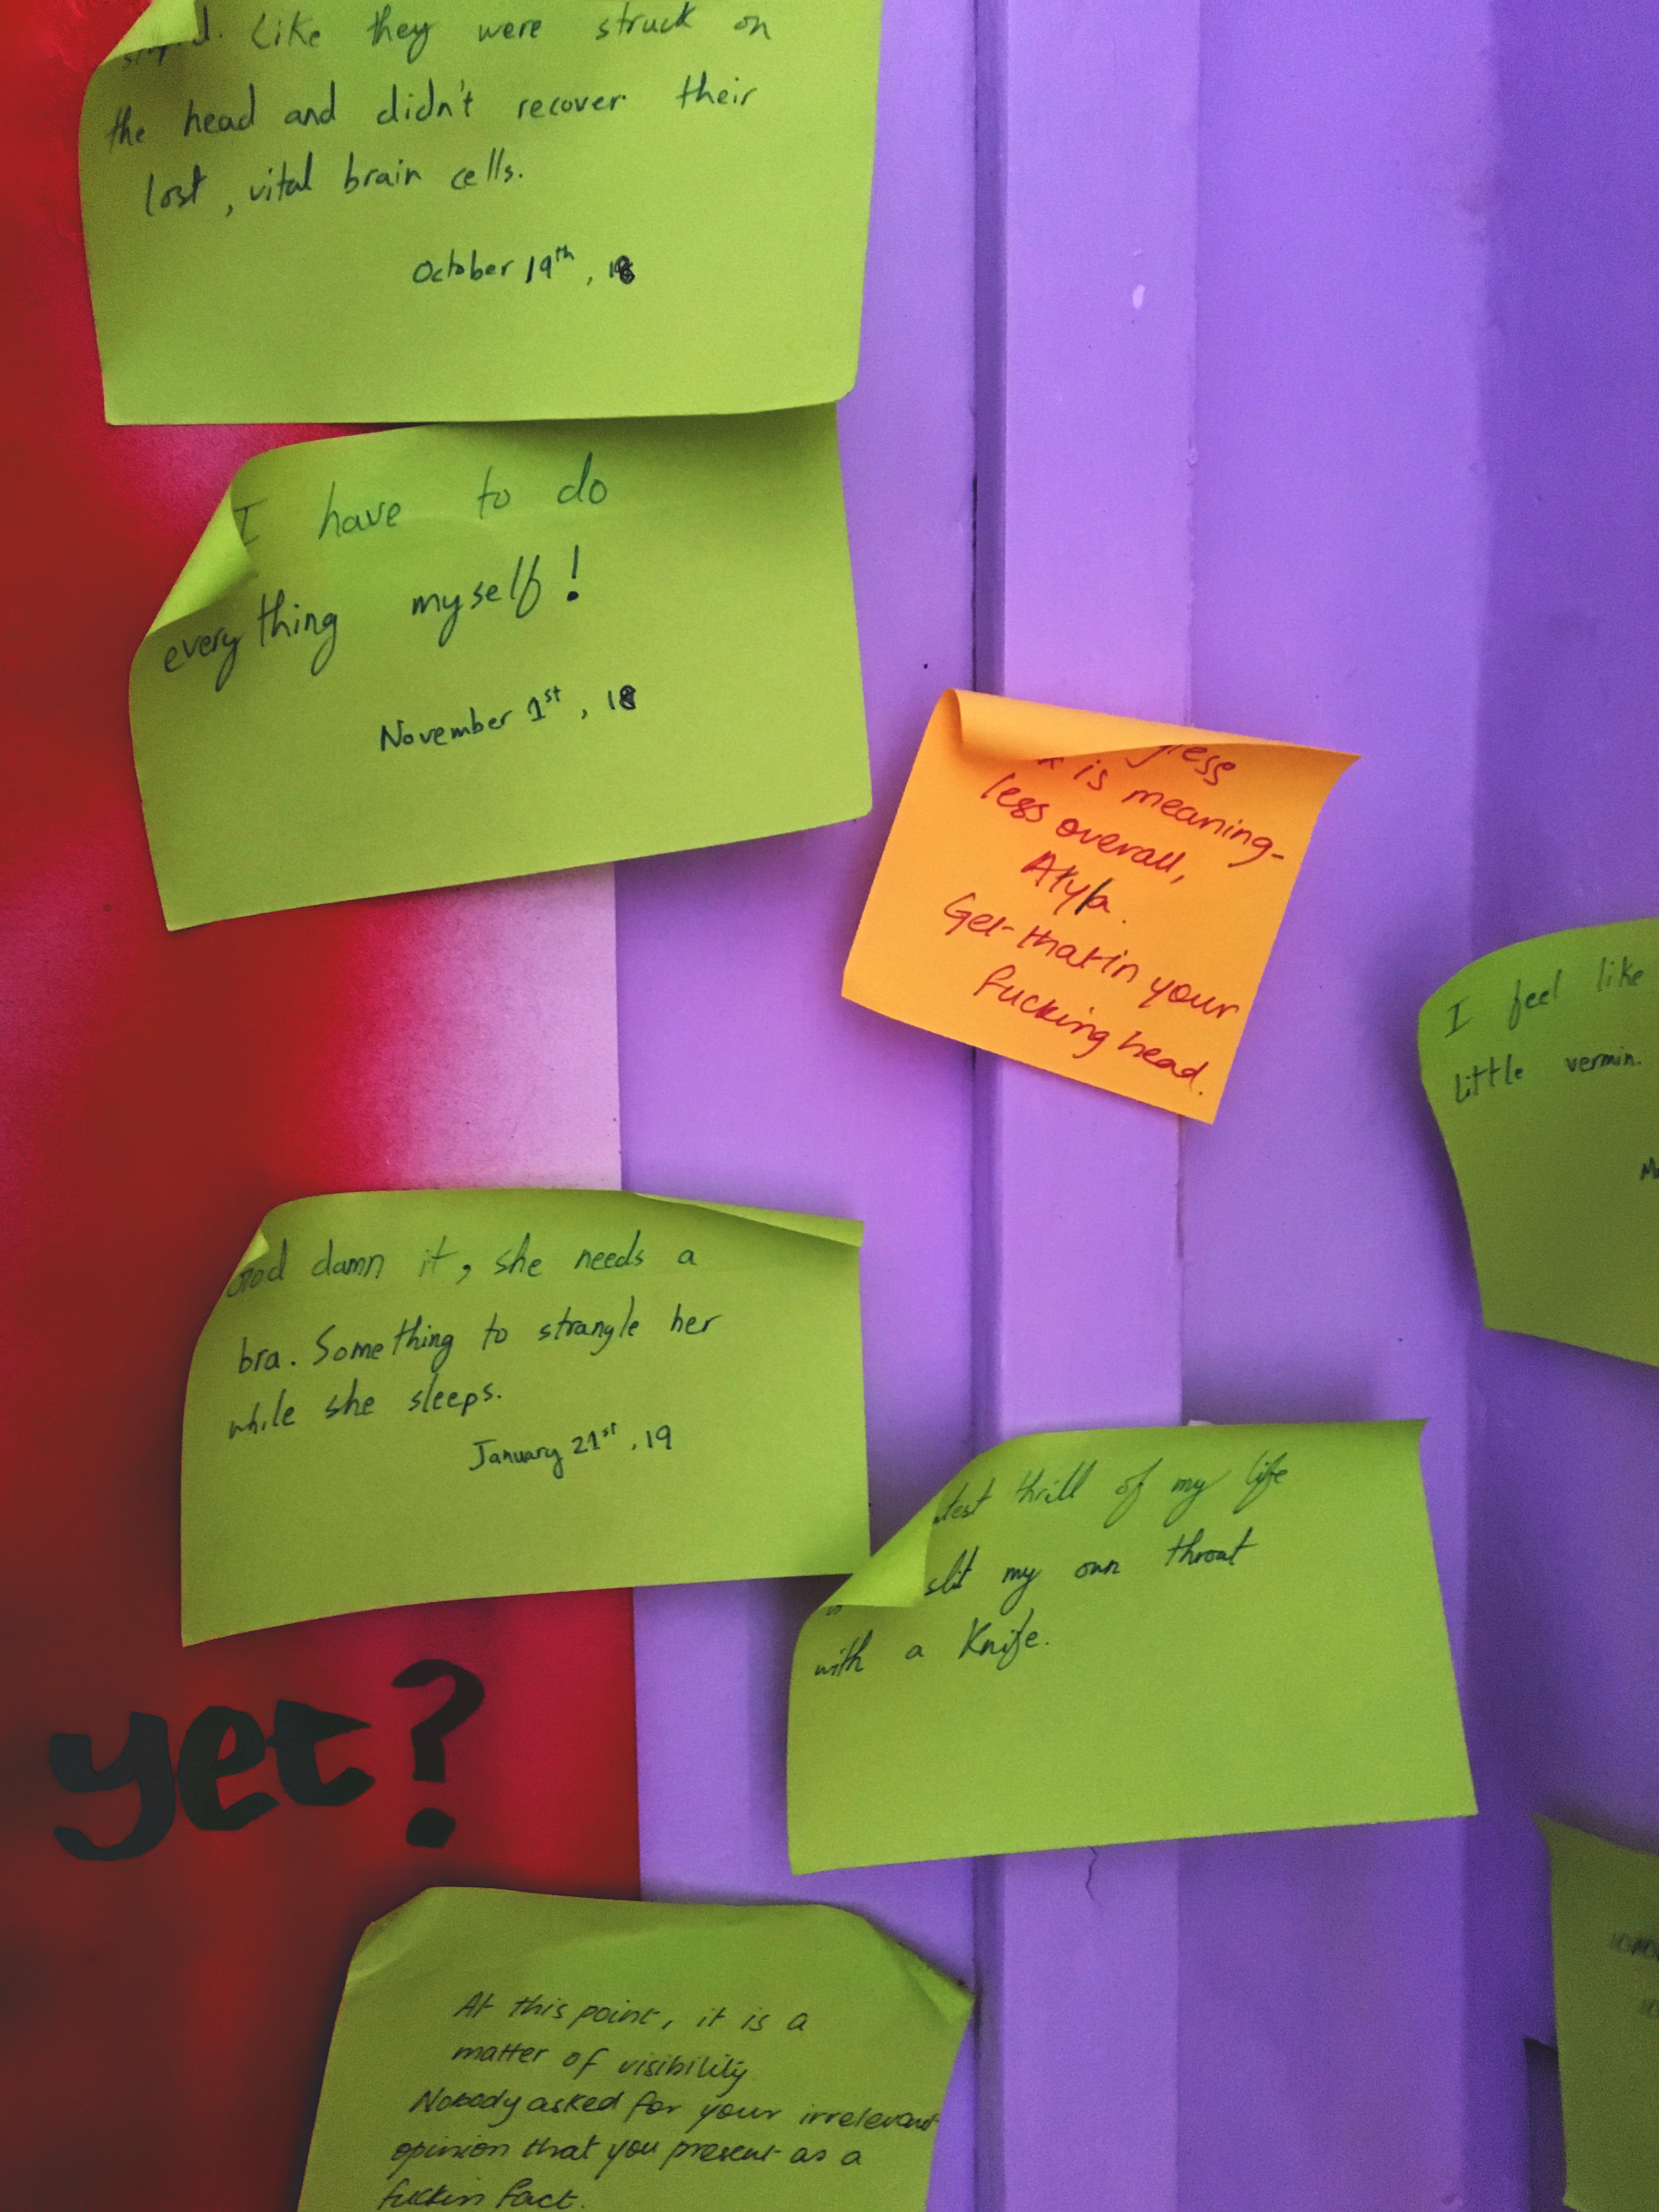 Like they were struck on
the head and didn't recover their
lost, vital brain cells.
October 19th, 18
I have to do
everything myself!
November 1st, 18
is meaning-
less overall,
Get that in your
fucking head.
I feel like
little vermin.
God damn it, she needs a
bra. Something to strangle her
while she sleeps.
January 21st, 19
thrill of my life
slit my own throat
with a knife.
yet?
At this point, it is a
matter of visibility
Nobody asked for your irrelevant
opinion that you present as a
fuckin fact.